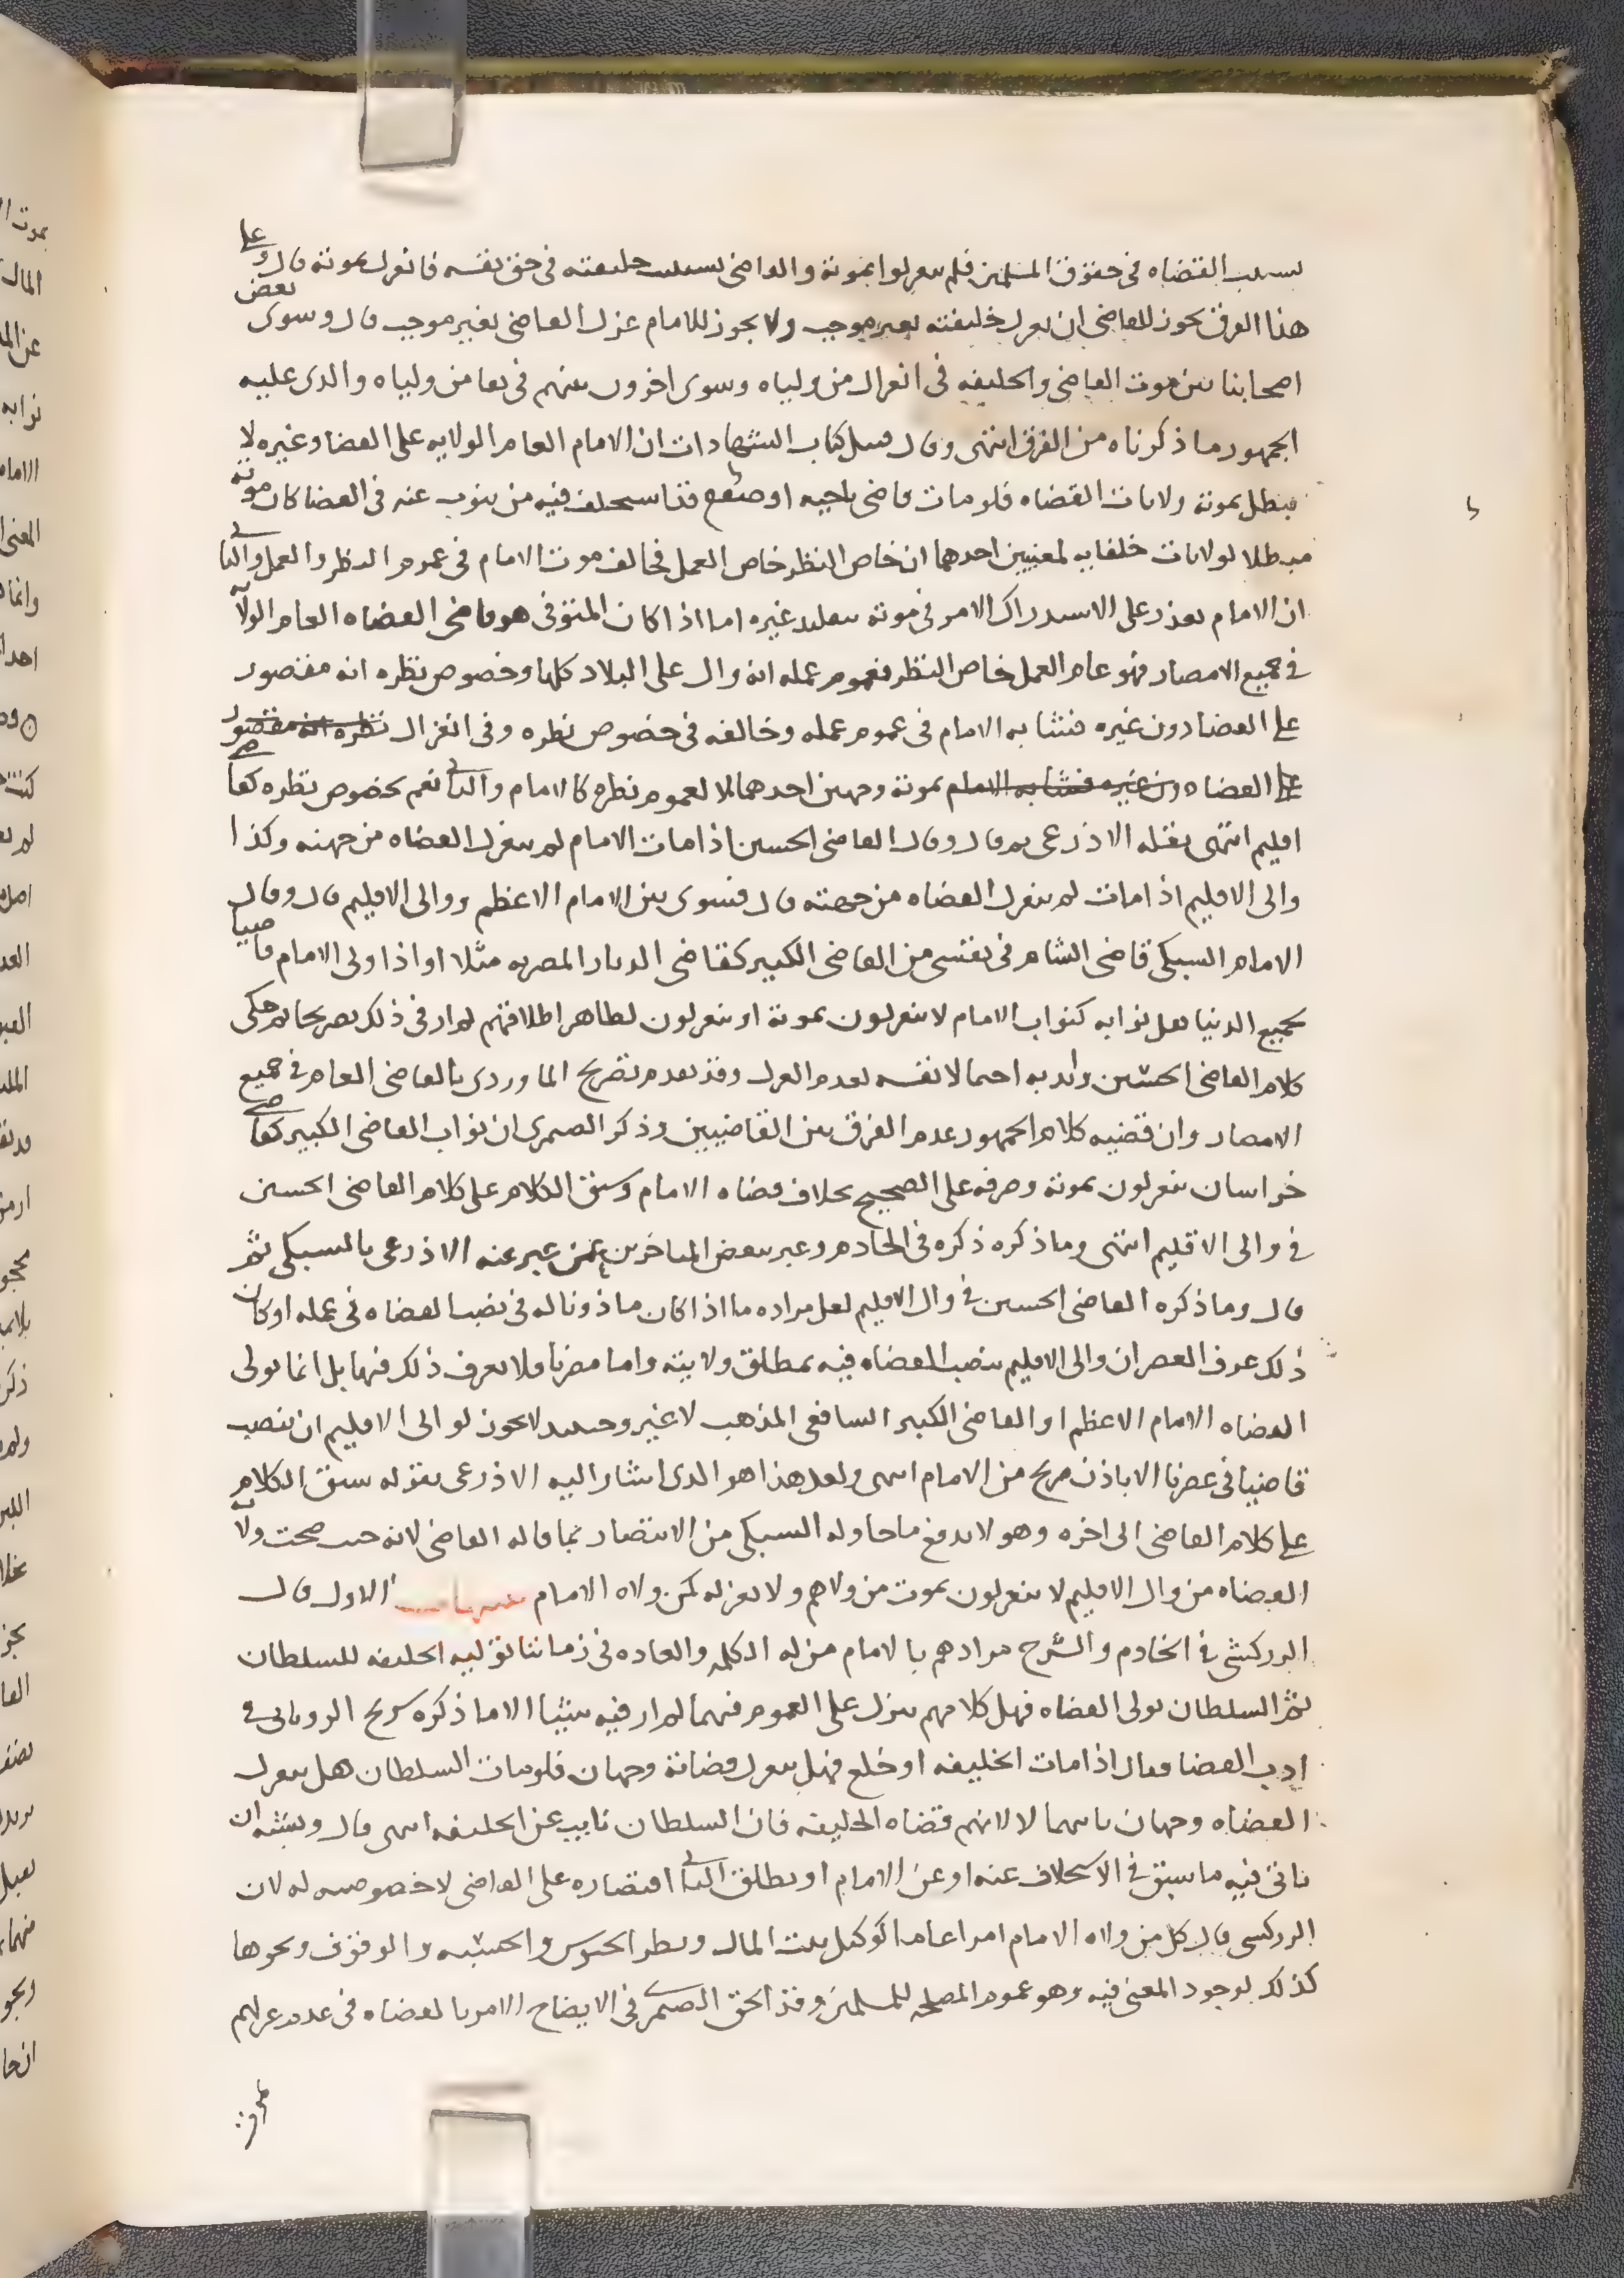 يستنيب القضاه في حقوق المسلمين فلم ينعزلوا بموته والقاضي يستنيب خليفته في حق نفسه فانعزل بموته قال وعلى
هذا الفرق يجوز للقاضي ان يعزل خليفته بغير موجب ولا يجوز للامام عزل القاضي بغير موجب قال وسوى بعض
اصحابنا بين موت القاضي والخليفه في انعزال من ولياه وسوى اخرون منهم في بقا من ولياه والذى عليه
الجمهور ما ذكرناه من الفرق انتهى وقال قبل كتاب الشهادات ان الامام العام الولايه على القضا وغيره لا
يبطل بموته ولايات القضاه فلو مات قاضي ناحيه او صقع قد استخلف فيه من ينوب عنه في القضا كان موته
مبطلا لولايات خلفايه لمعنيين احدهما ان خاص النظر خاص العمل فخالف موت الامام في عموم النظر والعمل والثاني
ان الامام يقدر على الاستدراك الامر في موته بتقليد غيره اما اذا كان المتوفى هو قاضى القضاه العام الولاية
في جميع الامصار فهو عام العمل خاص النظر فعموم عمله انه وال على البلاد كلها وخصوص نظره انه مقصور
على القضا دون غيره فشابه الامام في عموم عمله وخالفه في خصوص نظره وفي انعزال نظره انه مقصور
على القضاه دون غيره فشابه الامام بموته وجهين احدهما لا لعموم نظره كالامام والثاني نعم بخصوص نظره كقاضي
اقليم انتهى نقله الاذرعى ثم قال وقال القاضي الحسين اذا مات الامام لم ينعزل القضاه من جهته وكذا
والى الاقليم اذا مات لم ينعزل القضاه من جهته قال فسوى بين الامام الاعظم ووالى الاقليم قال وقال
الامام السبكي قاضي الشام في نفسى من القاضي الكبير كقاضي الديار المصريه مثلا او اذا ولى الامام قاضيا
بجميع الدنيا هل نوابه كنواب الامام لا ينعزلون بموته او ينعزلون لظاهر اطلاقهم لم ار في ذلك تصريحا ثم حكى
كلام القاضي الحسين وايد به احتمالا لنفسه لعدم العزل وقد تقدم تصريح الماوردى بالقاضي العام في جميع
الامصار وان قضيه كلام الجمهور عدم الفرق بين القاضيين وذكر الصيمري ان نواب القاضي الكبير كقاضي
خراسان ينعزلون بموته وصرفه على الصحيح بخلاف قضاه الامام وسبق الكلام على كلام القاضي الحسين
في والى الاقليم انتهى وما ذكره ذكره في الخادم وعبر ببعض المتاخرين عمن عبر عنه الاذرعى بالسبكي ثم
قال وما ذكره القاضي الحسين في وال الاقليم لعل مراده ما اذا كان ماذونا له في نصب القضاه في عمله او كان
ذلك عرف العصر ان والى الاقليم ينصب القضاه فيه بمطلق ولايته واما مصرنا فلا يعرف ذلك فيها بل انما يولى
القضاه الامام الاعظم او القاضي الكبير الشافعي المذهب لا غير وحينيذ لا يجوز لوالى الاقليم ان ينصب
قاضيا في عصرنا الا باذن صريح من الامام انتهى ولعل هذا هو الذى اشار اليه الاذرعى بقوله سبق الكلام
على كلام القاضي الى اخره وهو لا يدفع ما حاوله السبكي من الانتصار بما قاله القاضي لانه حيث صحت ولاية
القضاه من وال الاقليم لا ينعزلون بموت من ولاهم ولا بعزله كمن ولاه الامام تنبيهات الاول قال
الزركشي في الخادم والشرح مرادهم بالامام من له الكلمه والعاده في زماننا تولية الخليفه للسلطان
ثم السلطان يولى القضاه فهل كلامهم ينزل على العموم فيهما لم ار فيه شيئا الا ما ذكره شريح الروياني في
ادب القضا فقال اذا مات الخليفه او خلع فهل ينعزل قضاته وجهان فلو مات السلطان هل ينعزل
القضاه وجهان ثانيهما لا لانهم قضاه الخليفه فان السلطان نايب عن الخليفه انتهى قال ويشبه ان
ياتي فيه ما سبق في الاستخلاف عنه او عن الامام او يطلق الثاني اقتصاره على القاضي لا خصوصيه له لان
الزركشي قال كل من ولاه الامام امرا عاما كوكيل بيت المال ونظر الجيوش والحسبه والوقوف ونحوها
كذلك لوجود المعنى فيه وهو عموم المصلحه للمسلمين وقد الحق الصيمري في الايضاح الامر بالقضاه في عدم عزلهم
بموت